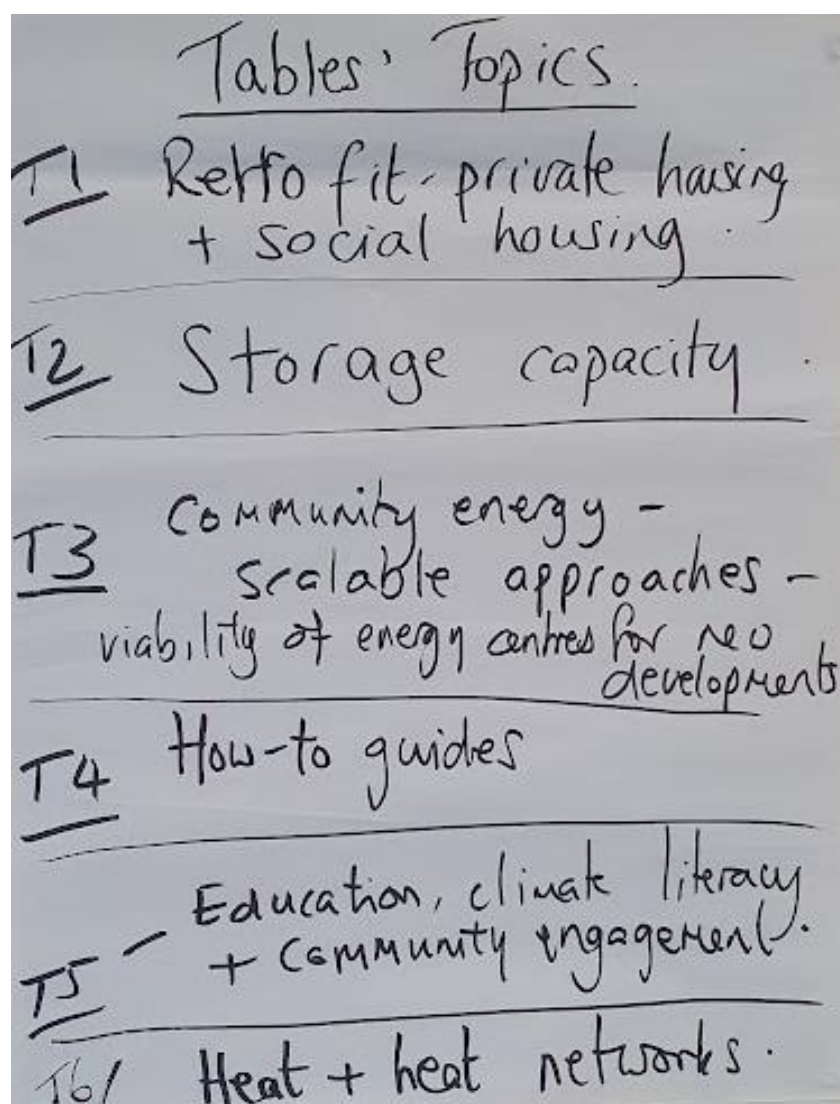 Tables' Topics.
T1 Retrofit - private housing
+ social housing.
T2 Storage capacity.
T3 Community energy -
scalable approaches -
viability of energy centres for new
developments
T4 How-to guides
T5 - Education, climate literacy
+ community engagement.
T6/ Heat + heat networks.